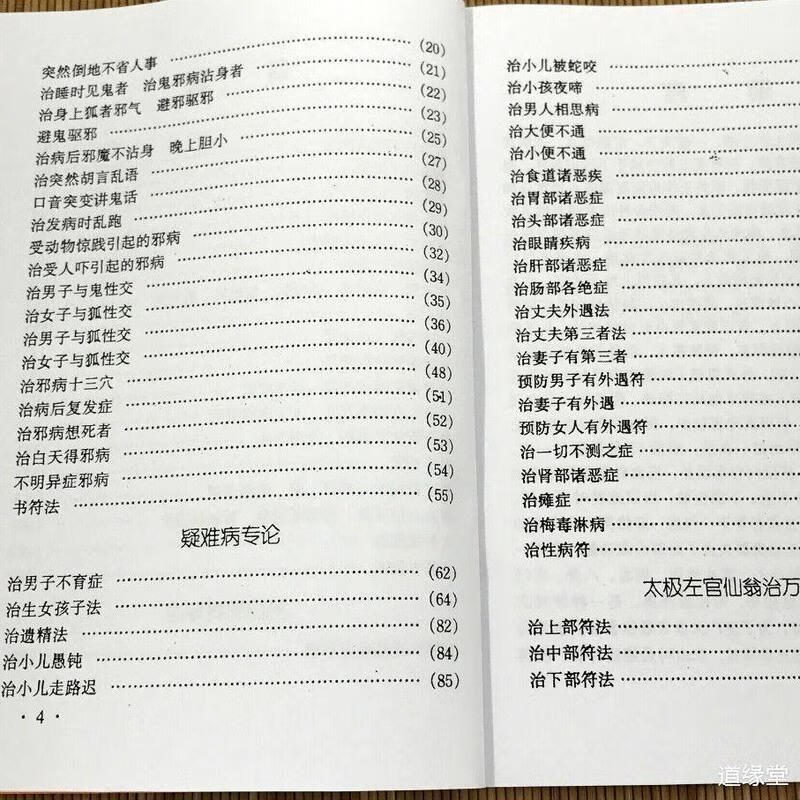 突然倒地不省人事 ……………………… (20)
治睡时见鬼者 治鬼邪病沾身者 ……………………… (21)
治身上狐者邪气 避邪驱邪 ……………………… (22)
避鬼驱邪 ……………………… (23)
治病后邪魔不沾身 晚上胆小 ……………………… (25)
治突然胡言乱语 ……………………… (27)
口音突变讲鬼话 ……………………… (28)
治发病时乱跑 ……………………… (29)
受动物惊践引起的邪病 ……………………… (30)
治受人吓引起的邪病 ……………………… (32)
治男子与鬼性交 ……………………… (34)
治女子与狐性交 ……………………… (35)
治男子与狐性交 ……………………… (36)
治女子与狐性交 ……………………… (40)
治邪病十三穴 ……………………… (48)
治病后复发症 ……………………… (51)
治邪病想死者 ……………………… (52)
治白天得邪病 ……………………… (53)
不明异症邪病 ……………………… (54)
书符法 ……………………… (55)
疑难病专论
治男子不育症 ……………………… (62)
治生女孩子法 ……………………… (64)
治遗精法 ……………………… (82)
治小儿愚钝 ……………………… (84)
治小儿走路迟 ……………………… (85)
· 4 ·
治小儿被蛇咬 ………………
治小孩夜啼 ………………
治男人相思病 ………………
治大便不通 ………………
治小便不通 ………………
治食道诸恶疾 ………………
治胃部诸恶症 ………………
治头部诸恶症 ………………
治眼睛疾病 ………………
治肝部诸恶症 ………………
治肠部各绝症 ………………
治丈夫外遇法 ………………
治丈夫第三者法 ………………
治妻子有第三者 ………………
预防男子有外遇符 ………………
治妻子有外遇 ………………
预防女人有外遇符 ………………
治一切不测之症 ………………
治肾部诸恶症 ………………
治瘫症 ………………
治梅毒淋病 ………………
治性病符 ………………
太极左官仙翁治万
治上部符法 ………………
治中部符法 ………………
治下部符法 ………………
道缘堂